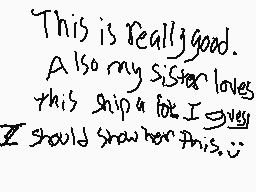 This is really good.
Also my sister loves
this ship a lot I guess
I should show her this. :)